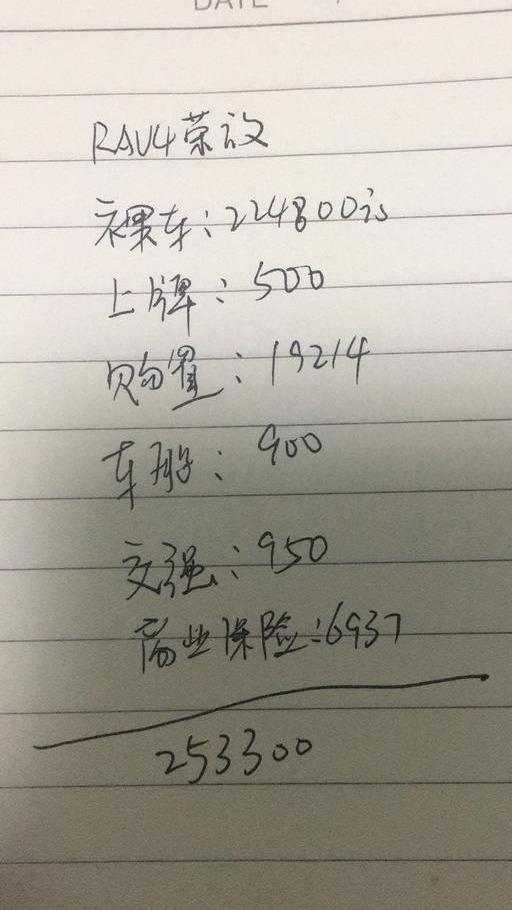 DATE
RAV4荣放
裸车：224800
上牌：500
购置：19214
车船：900
交强：950
商业保险：6937
253300